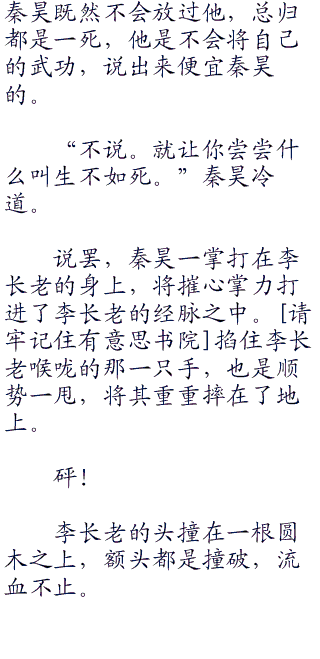 秦昊既然不会放过他，总归
都是一死，他是不会将自己
的武功，说出来便宜秦昊
的。
“不说。就让你尝尝什
么叫生不如死。”秦昊冷
道。
说罢，秦昊一掌打在李
长老的身上，将摧心掌力打
进了李长老的经脉之中。[请
牢记住有意思书院]掐住李长
老喉咙的那一只手，也是顺
势一甩，将其重重摔在了地
上。
砰！
李长老的头撞在一根圆
木之上，额头都是撞破，流
血不止。